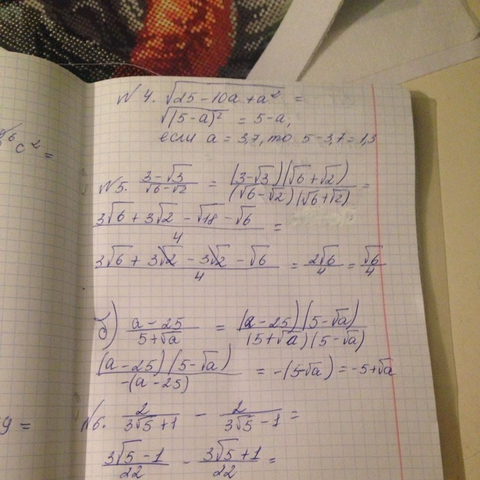 №4. √(25-10a+a²) =
√(5-a)² = 5-a,
если a = 3,7, то 5-3,7=1,3
c² =
№5. (3-√3)/(√6-√2) = (3-√3)(√6+√2)/(√6-√2)(√6+√2) =
(3√6+3√2-√18-√6)/4 =
(3√6+3√2-3√2-√6)/4 = 2√6/4 = √6/4
б) (a-25)/(5+√a) = (a-25)(5-√a)/(5+√a)(5-√a)
(a-25)(5-√a)/-(a-25) = -(5-√a) = -5+√a
g =
№6. 2/(3√5+1) - 2/(3√5-1) =
(3√5-1)/22 - (3√5+1)/22 =